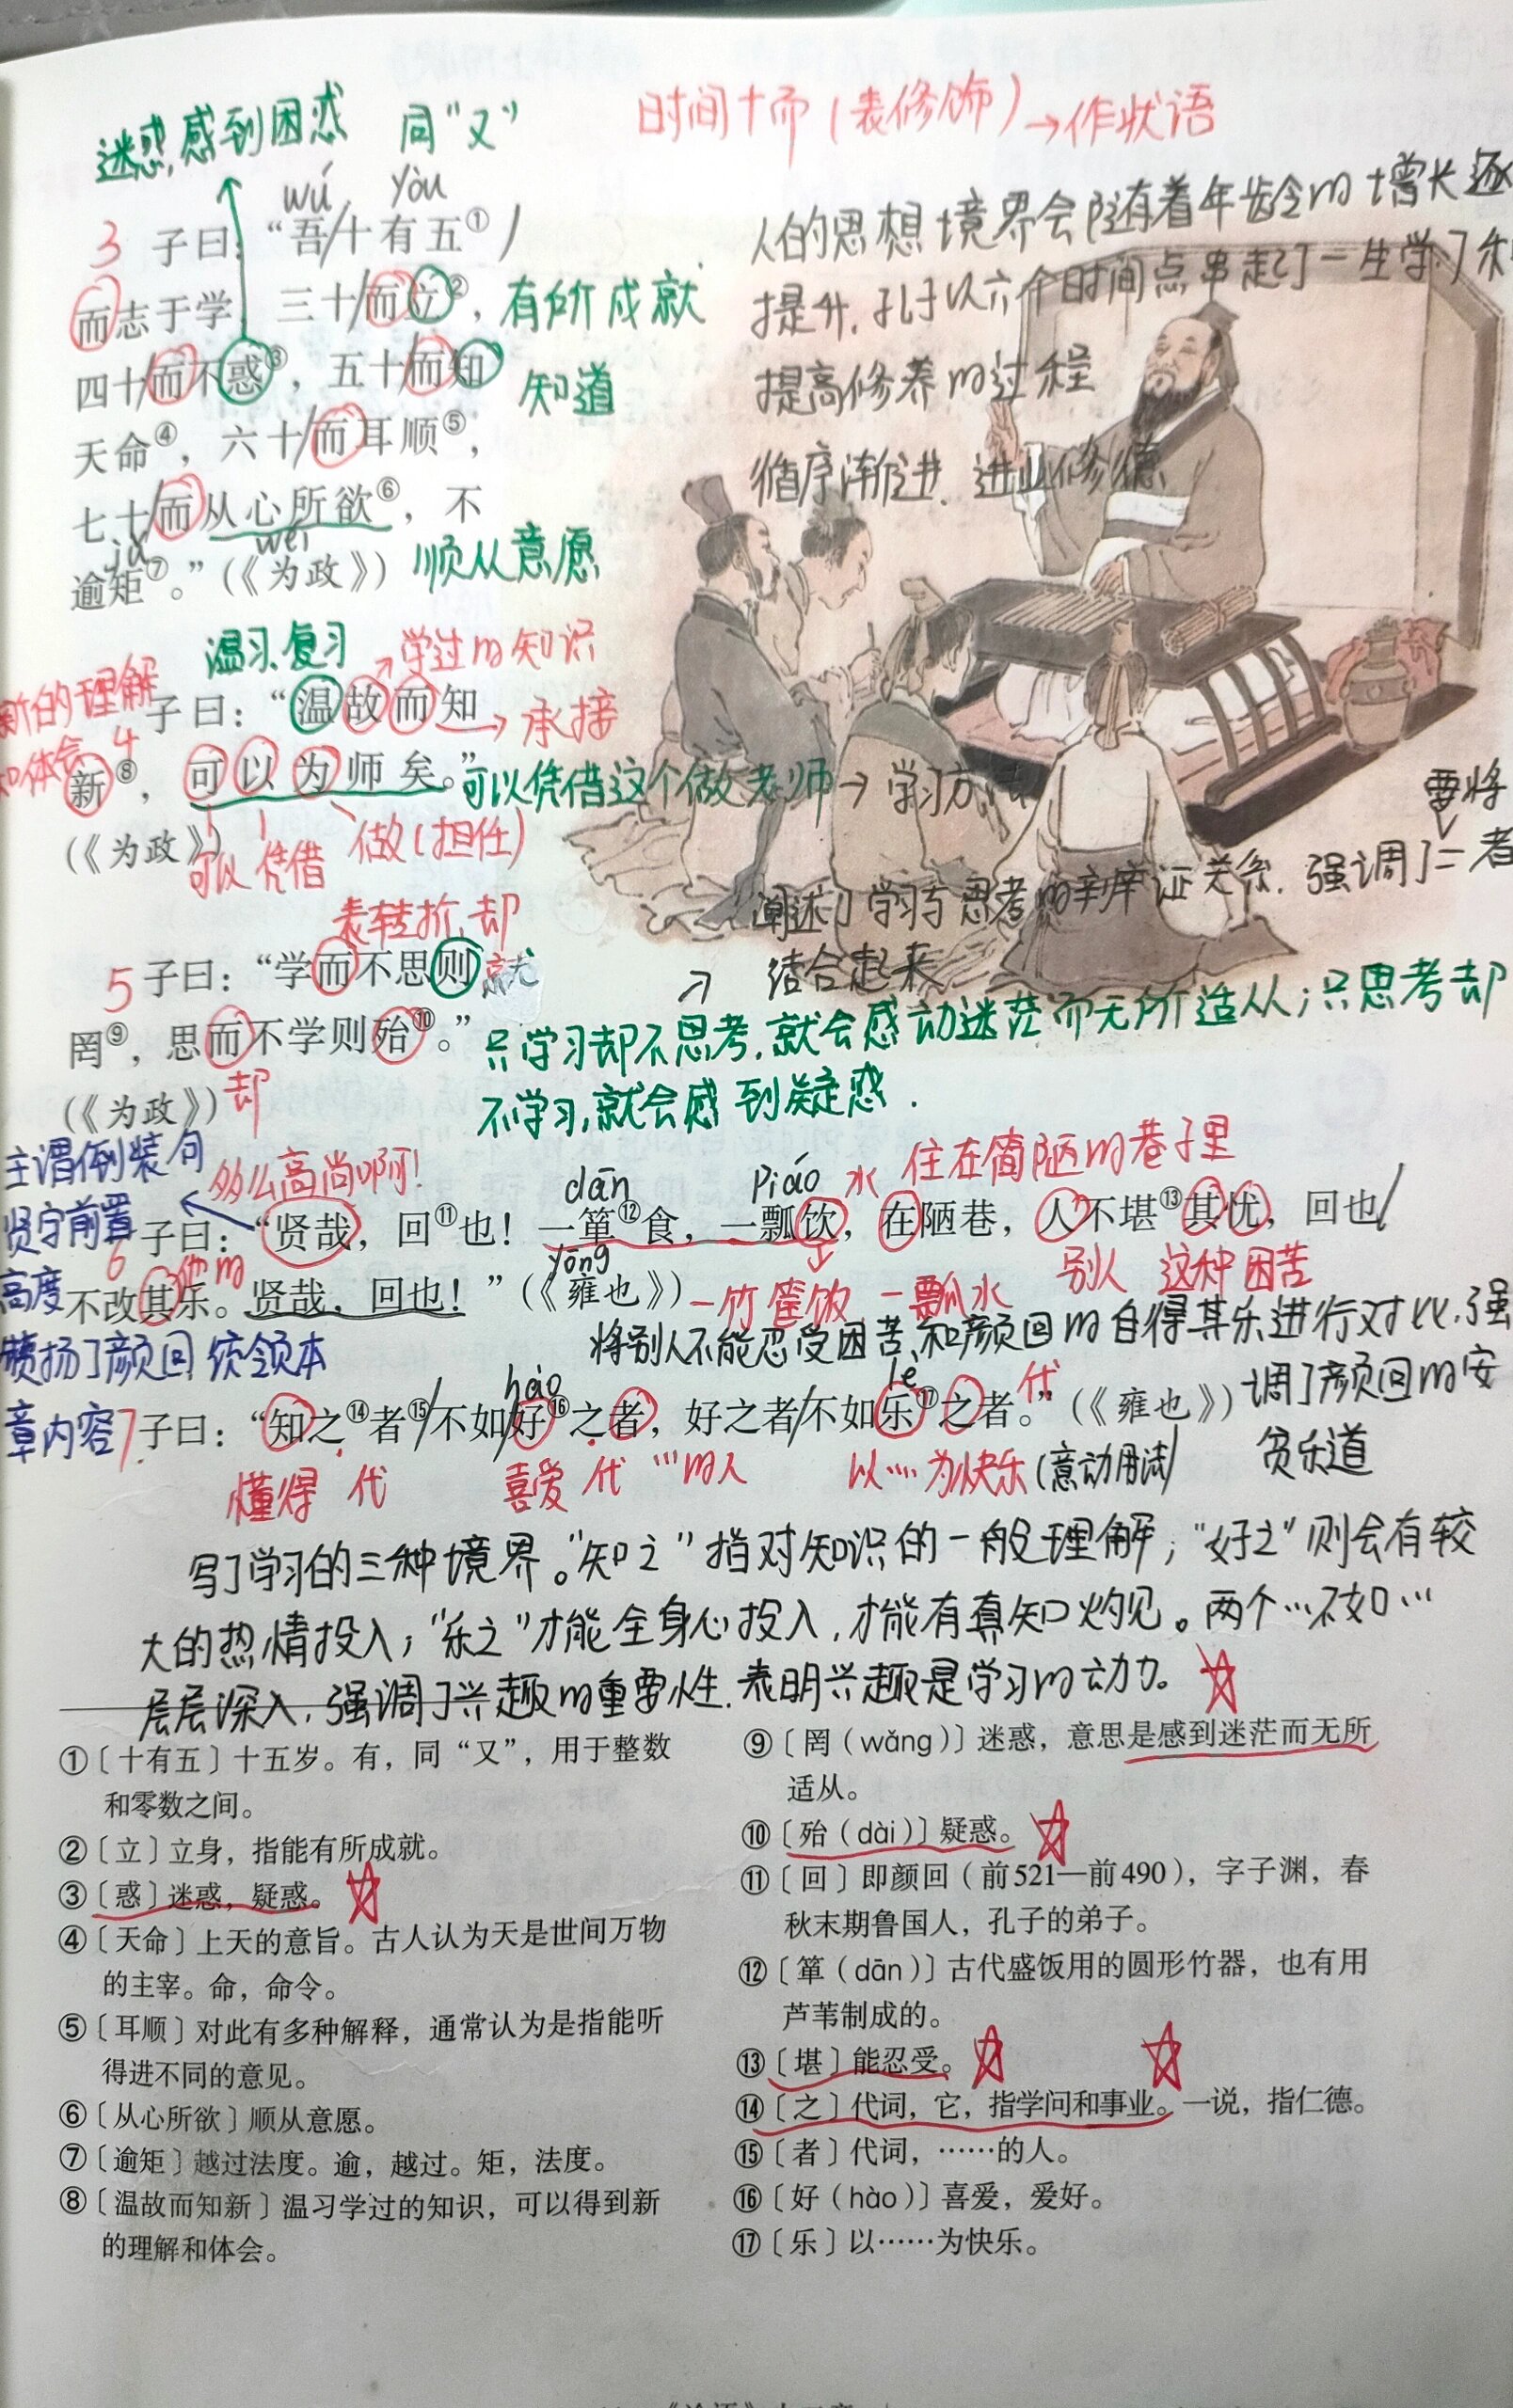 迷惑,感到困惑 同“又” 时间+而(表修饰)→作状语
wú yòu
3 子曰：“吾/十有五①/
而志于学，三十/而立②，有所成就
四十/而不惑③，五十/而知 知道
天命④，六十/而耳顺⑤，
七十/而从心所欲⑥，不
jǔ wéi
逾矩⑦。”(《为政》) 顺从意愿
人的思想境界会随着年龄的增长逐
提升.孔子以六个时间点串起了一生学习和
提高修养的过程
循序渐进.进业修德
温习、复习 →学过的知识
新的理解
和体会
4 子曰：“温故而知→承接
新⑧，可以为师矣。”可以凭借这个做老师→学习方法
(《为政》)
可以 凭借 做(担任)
要将
阐述了学习与思考的辩证关系.强调了二者
结合起来
表转折,却
5 子曰：“学而不思则 就
罔⑨，思而不学则殆⑩。”只学习却不思考,就会感动迷茫而无所适从;只思考却
(《为政》)却 不学习,就会感到疑惑.
主谓倒装句
贤字前置
高度
赞扬了颜回 统领本
章内容
多么高尚啊! dān piáo 水 住在简陋的巷子里
6 子曰：“贤哉，回⑪也！一箪⑫食，一瓢饮，在陋巷，人不堪⑬其忧，回也/
他的 yōng 别人 这种困苦
不改其乐。贤哉，回也！”(《雍也》) 一竹筐饭 一瓢水
将别人不能忍受困苦、和颜回的自得其乐进行对比.强
调了颜回的安
贫乐道
hào lè 代
7 子曰：“知之⑭者⑮/不如/好⑯之者，好之者/不如乐⑰之者。”(《雍也》)
懂得 代 喜爱 代 …的人 以……为快乐(意动用法)
写了学习的三种境界。“知之”指对知识的一般理解;“好之”则会有较
大的热情投入;“乐之”才能全身心投入,才能有真知灼见。两个…不如…
层层深入,强调了兴趣的重要性.表明兴趣是学习的动力。
①〔十有五〕十五岁。有，同“又”，用于整数
和零数之间。
②〔立〕立身，指能有所成就。
③〔惑〕迷惑，疑惑。
④〔天命〕上天的意旨。古人认为天是世间万物
的主宰。命，命令。
⑤〔耳顺〕对此有多种解释，通常认为是指能听
得进不同的意见。
⑥〔从心所欲〕顺从意愿。
⑦〔逾矩〕越过法度。逾，越过。矩，法度。
⑧〔温故而知新〕温习学过的知识，可以得到新
的理解和体会。
⑨〔罔（wǎng）〕迷惑，意思是感到迷茫而无所
适从。
⑩〔殆（dài）〕疑惑。
⑪〔回〕即颜回（前521—前490），字子渊，春
秋末期鲁国人，孔子的弟子。
⑫〔箪（dān）〕古代盛饭用的圆形竹器，也有用
芦苇制成的。
⑬〔堪〕能忍受。
⑭〔之〕代词，它，指学问和事业。一说，指仁德。
⑮〔者〕代词，……的人。
⑯〔好（hào）〕喜爱，爱好。
⑰〔乐〕以……为快乐。